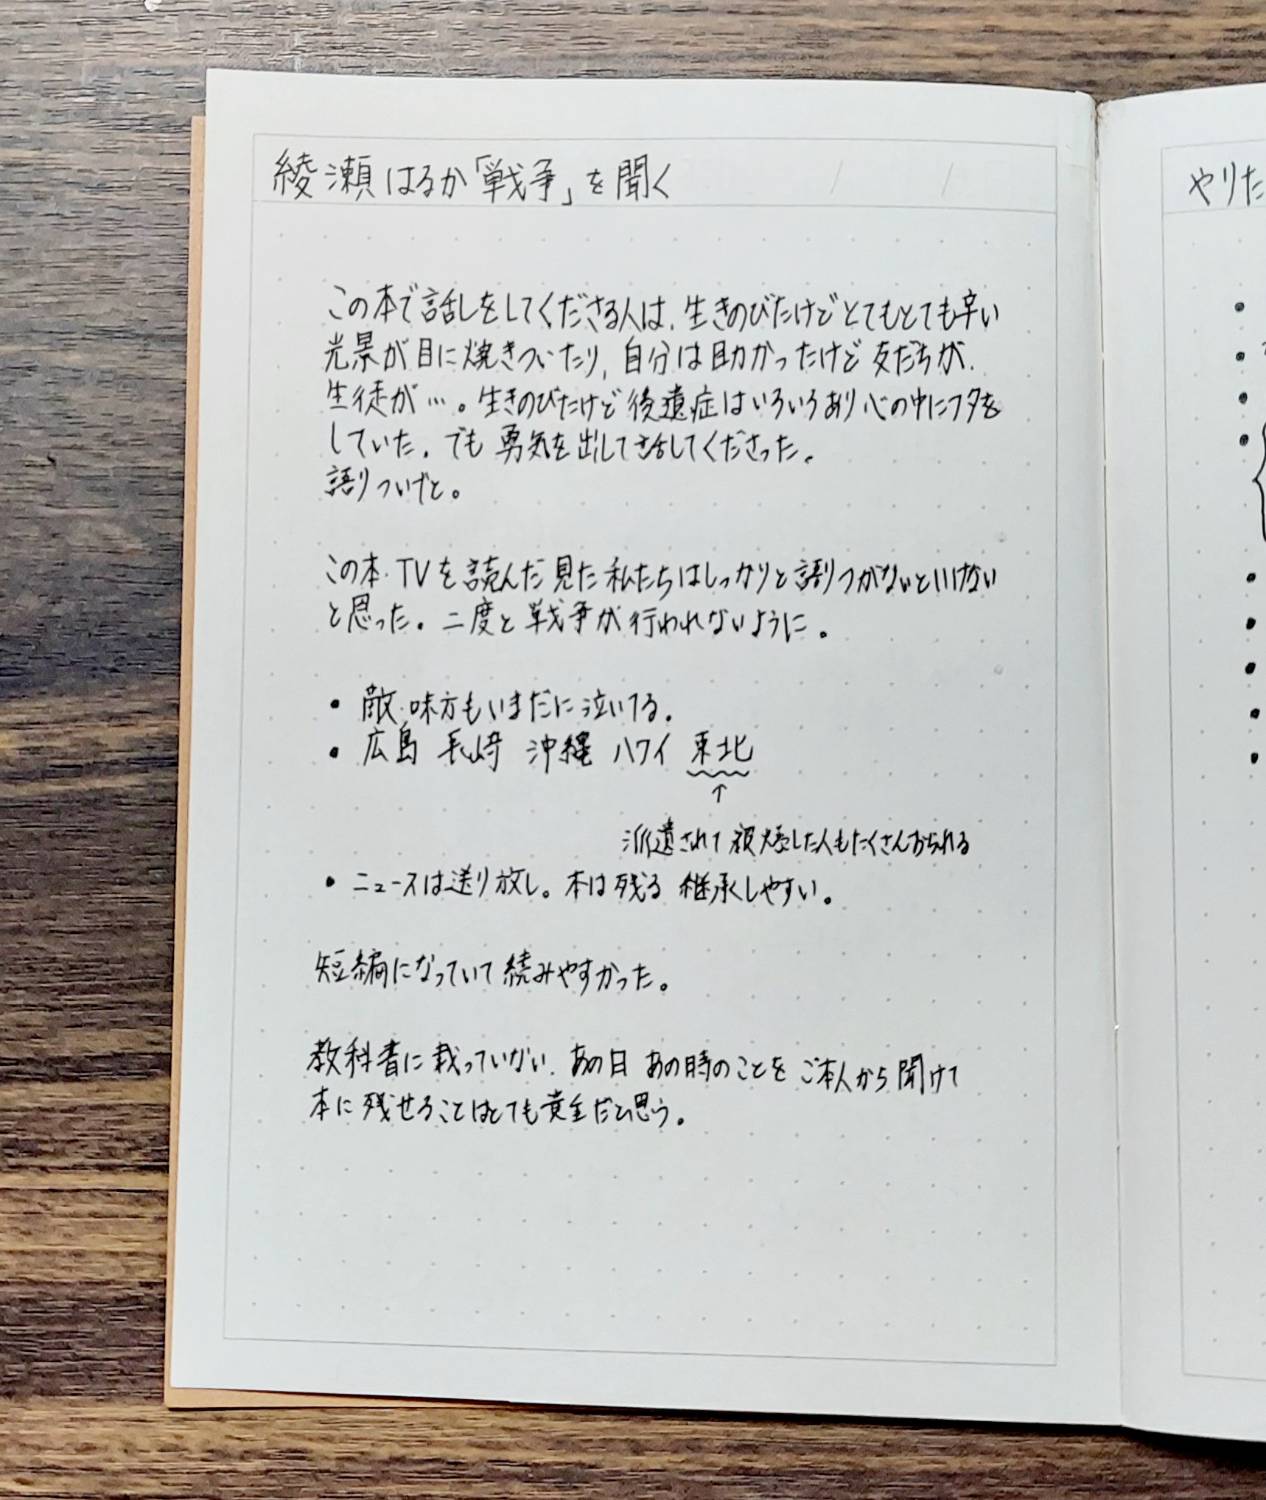 綾瀬はるか「戦争」を聞く
この本で話しをしてくださる人は、生きのびたけどとてもとても辛い
光景が目に焼きついたり、自分は助かったけど友だちが、
生徒が…。生きのびたけど後遺症はいろいろあり心の中にフタを
していた。でも勇気を出して話してくださった。
語りついでと。
この本・TVを読んだ見た私たちはしっかりと語りつがないといけない
と思った。二度と戦争が行われないように。
• 敵・味方もいまだに泣いてる。
• 広島 長崎 沖縄 ハワイ 東北
↑
派遣されて被爆した人もたくさんおられる
• ニュースは送り放し。本は残る 継承しやすい。
短編になっていて続みやすかった。
教科書に載っていない、あの日 あの時のことを ご本人から聞けて
本に残せることはとても黄金だと思う。
やりた